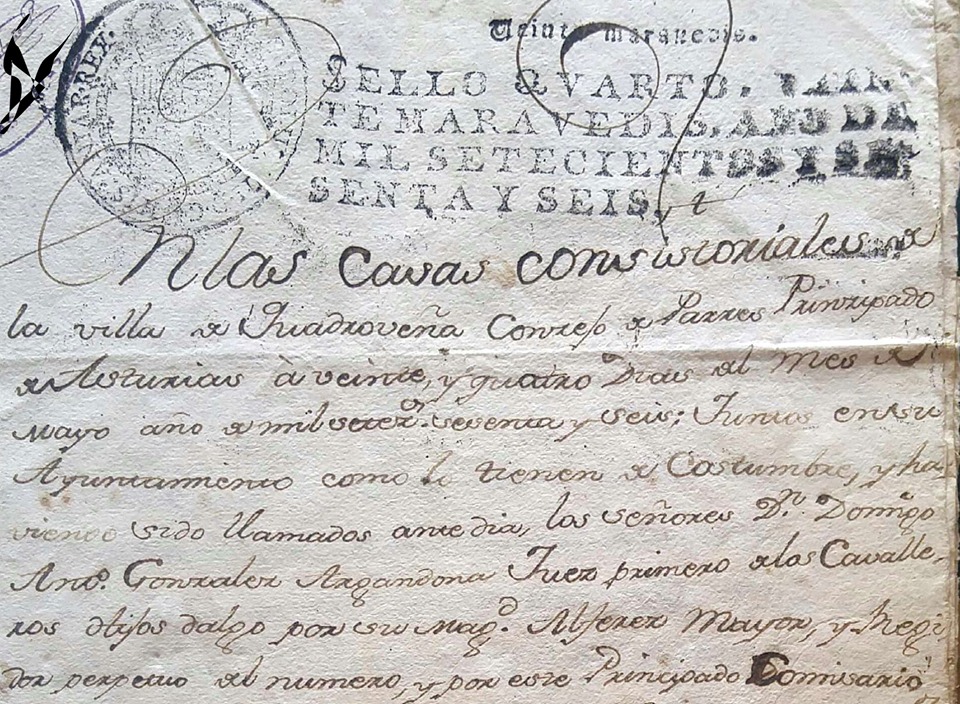 Veinte maravedis.
SELLO QVARTO. VEIN
TE MARAVEDIS, AÑO DE
MIL SETECIENTOS Y SE
SENTA Y SEIS.
Nlas Casas consistoriales de
la villa de Quadroveña Conzejo de Parres Prinzipado
de Asturias à veinte, y quatro Dias del Mes de
Mayo año de mil seteZ.os sesenta y seis; Juntos en su
Ayuntamiento como lo tienen de Costumbre, y ha
viendo sido llamados ante dia, los señores D.n Domingo
Ant.o Gonzalez Argandona Juez primero de los Cavalle-
ros Hijos dalgo por su Mag.d Alferez Mayor, y Regi
dor perpetuo del numero, y por este Principado Comisario